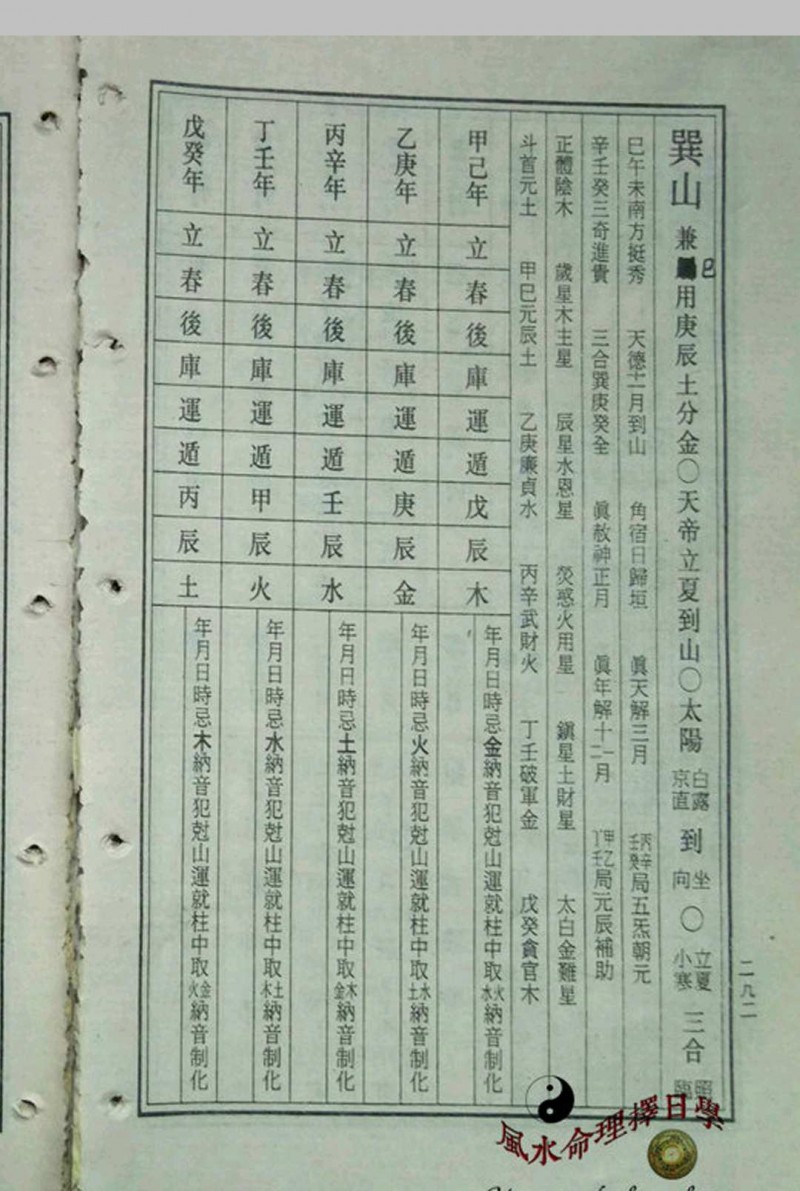 巽山兼巳用庚辰土分金○天帝立夏到山○太陽白露到坐向○立夏小寒三合照臨
巳午未南方挺秀 天德十二月到山 角宿日歸垣 眞天解三月 丙辛壬癸局五炁朝元
辛壬癸三奇進貴 三合巽庚癸全 眞赦神正月 眞年解十二月 甲乙丁壬局元辰補助
正體陰木 歲星木主星 辰星水恩星 熒惑火用星 鎭星土財星 太白金難星
斗首元土 甲巳元辰土 乙庚廉貞水 丙辛武財火 丁壬破軍金 戊癸貪官木
甲己年立春後庫運遁戊辰木 年月日時忌金納音犯尅山運就柱中取火水納音制化
乙庚年立春後庫運遁庚辰金 年月日時忌火納音犯尅山運就柱中取水土納音制化
丙辛年立春後庫運遁壬辰水 年月日時忌土納音犯尅山運就柱中取木金納音制化
丁壬年立春後庫運遁甲辰火 年月日時忌水納音犯尅山運就柱中取土木納音制化
戊癸年立春後庫運遁丙辰土 年月日時忌木納音犯尅山運就柱中取金火納音制化
二九二
風水命理擇日學